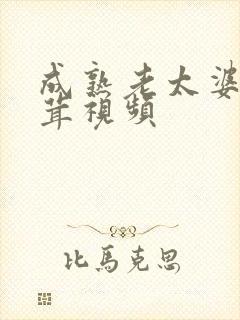 成熟老太婆
茸視頻
比馬克思